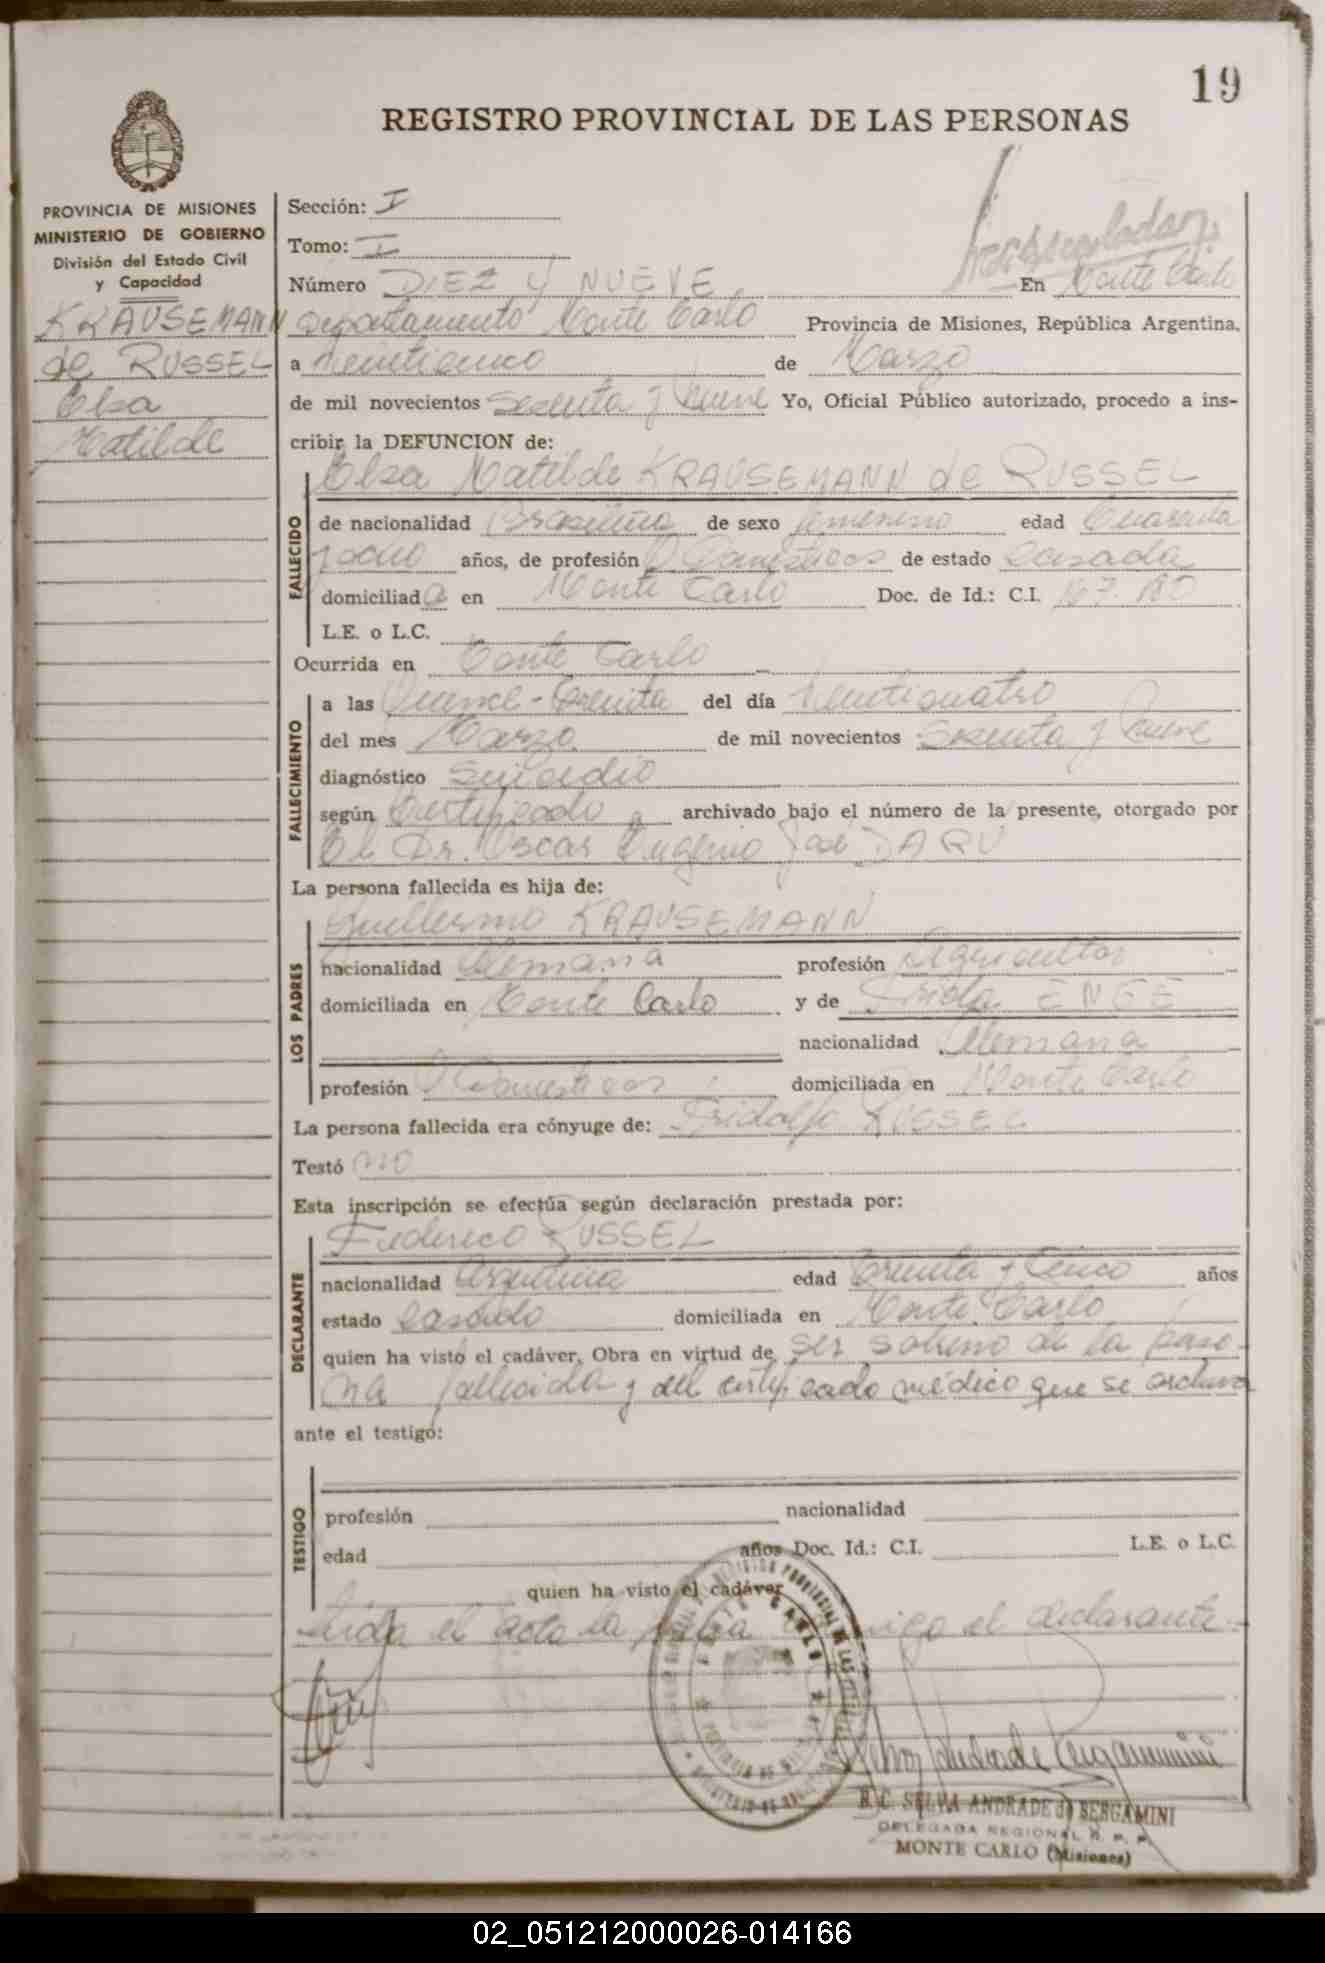 19
REGISTRO PROVINCIAL DE LAS PERSONAS
PROVINCIA DE MISIONES
MINISTERIO DE GOBIERNO
División del Estado Civil
y Capacidad
KRAUSEMANN
de RUSSEL
Elsa
Matilde
Sección: I
Tomo: I
Número DIEZ Y NUEVE En Monte Carlo
Departamento Monte Carlo Provincia de Misiones, República Argentina,
a veinticinco de Marzo
de mil novecientos Sesenta y Nueve Yo, Oficial Público autorizado, procedo a ins-
cribir la DEFUNCION de:
Elsa Matilde KRAUSEMANN de RUSSEL
FALLECIDO
de nacionalidad Brasileña de sexo femenino edad Cuarenta
y ocho años, de profesión Q. Domésticos de estado Casada
domiciliada en Monte Carlo Doc. de Id.: C.I. 167.180
L.E. o L.C.
Ocurrida en Monte Carlo
FALLECIMIENTO
a las Quince-Treinta del día Veinticuatro
del mes Marzo de mil novecientos Sesenta y Nueve
diagnóstico Suicidio
según Certificado archivado bajo el número de la presente, otorgado por
El Dr. Oscar Eugenio José DARU
La persona fallecida es hija de:
LOS PADRES
Guillermo KRAUSEMANN
nacionalidad Alemana profesión Agricultor
domiciliada en Monte Carlo y de Frida ENGE
nacionalidad Alemana
profesión Q. Domésticos domiciliada en Monte Carlo
La persona fallecida era cónyuge de: Fridolfo RUSSEL
Testó no
Esta inscripción se efectúa según declaración prestada por:
DECLARANTE
Federico RUSSEL
nacionalidad Argentina edad Treinta y Cinco años
estado Casado domiciliada en Monte Carlo
quien ha visto el cadáver, Obra en virtud de ser sobrino de la perso-
na fallecida y del certificado médico que se archiva
ante el testigo:
TESTIGO
profesión nacionalidad
edad años Doc. Id.: C.I. L.E. o L.C.
quien ha visto el cadáver
Leída el acta la firma conmigo el declarante.-
R.C. SELVA ANDRADE de BERGAMINI
DELEGADA REGIONAL R. P. P.
MONTE CARLO (Misiones)
02_051212000026-014166